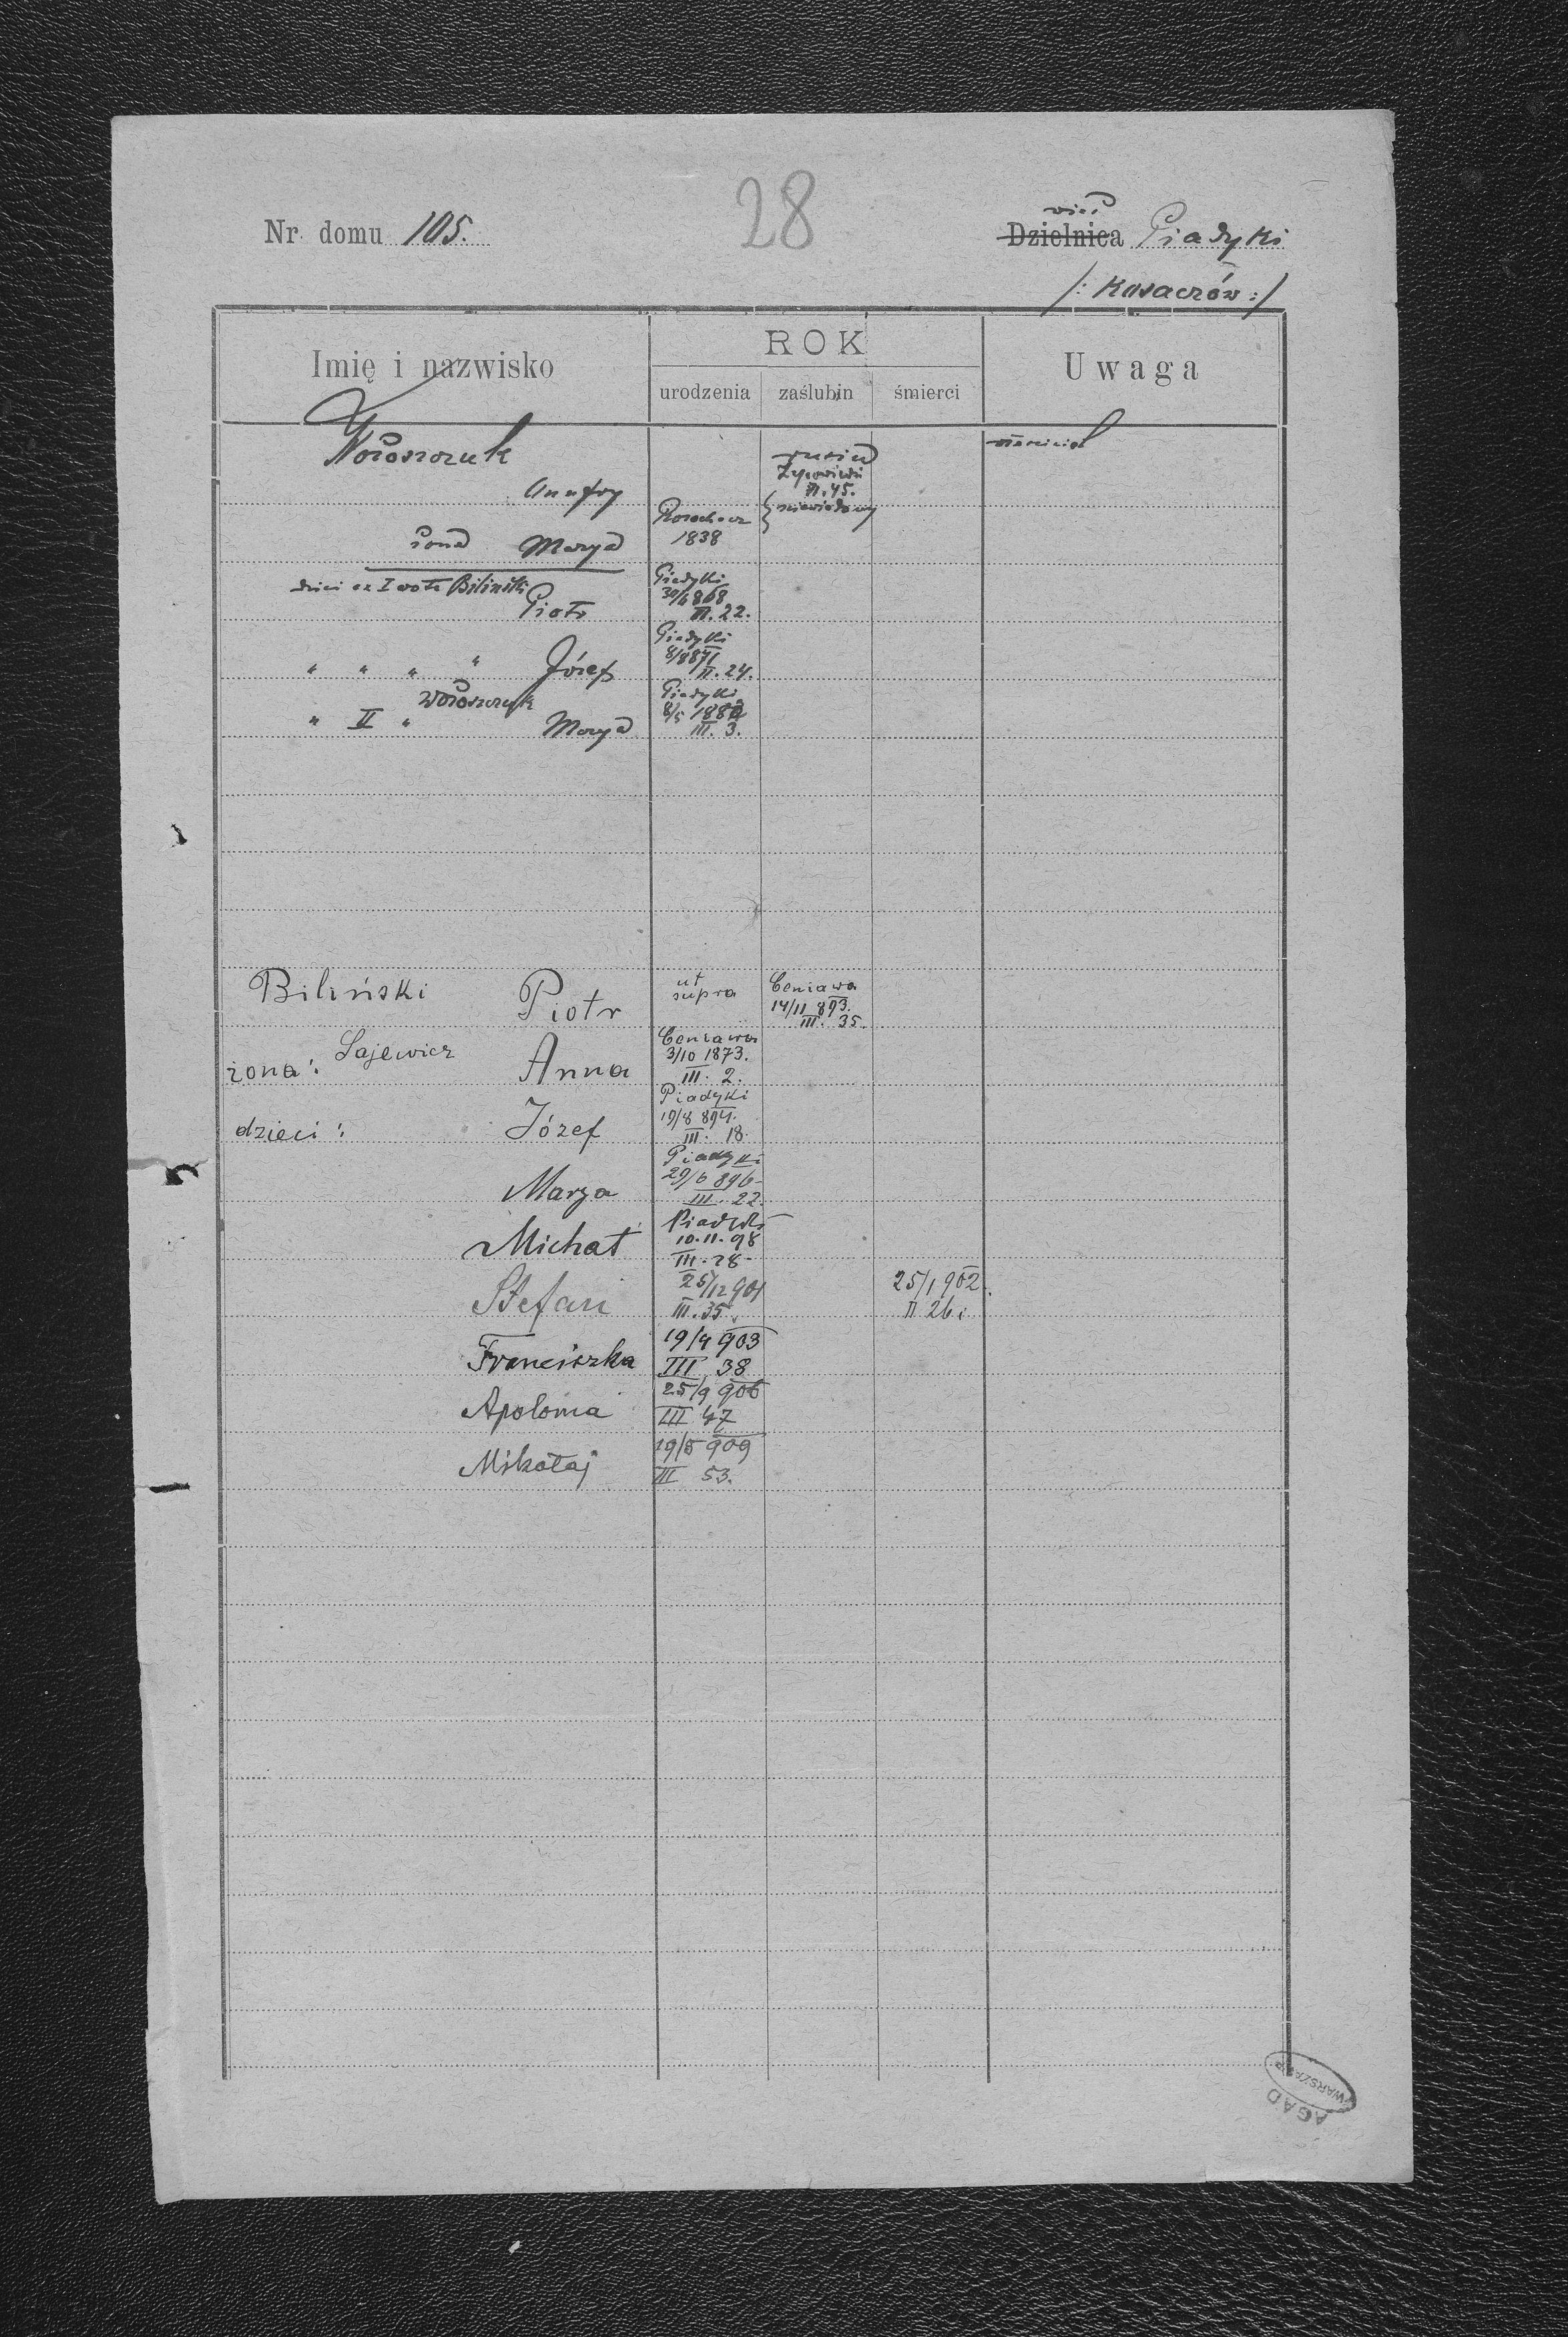 28
Nr. domu 105.
wieś
Dzielnica Piadyki
/: Kosaczów :/
Imię i nazwisko
ROK
urodzenia zaślubin śmierci
Uwaga
Wołoszczuk
Onufry
II. 45.
niewiadomy
żona Marya
1838
dzieci ex I voto Biliński
Piotr
Piadyki
30/6 868
II. 22.
" " " " Józef
Piadyki
8/8 871
II. 24.
Wołoszczuk
" II " Marya
Piadyki
8/5 1882
III. 3.
Biliński Piotr
ut supra
Ceniawa
14/11 893.
III. 35.
żona: Łajewicz Anna
Ceniawa
3/10 1873.
III. 2.
dzieci: Józef
Piadyki
19/8 894.
III. 18.
Marya
Piadyki
29/6 896
III. 22.
Michał
Piadyki
10.11.98
III. 28
Stefan
25/12 901
III. 35.
25/1 902.
II 26.
Franciszka
19/4 903
III 38
Apolonia
25/9 906
III 47
Mikołaj
19/5 909
III 53.
AGAD
WARSZAWA